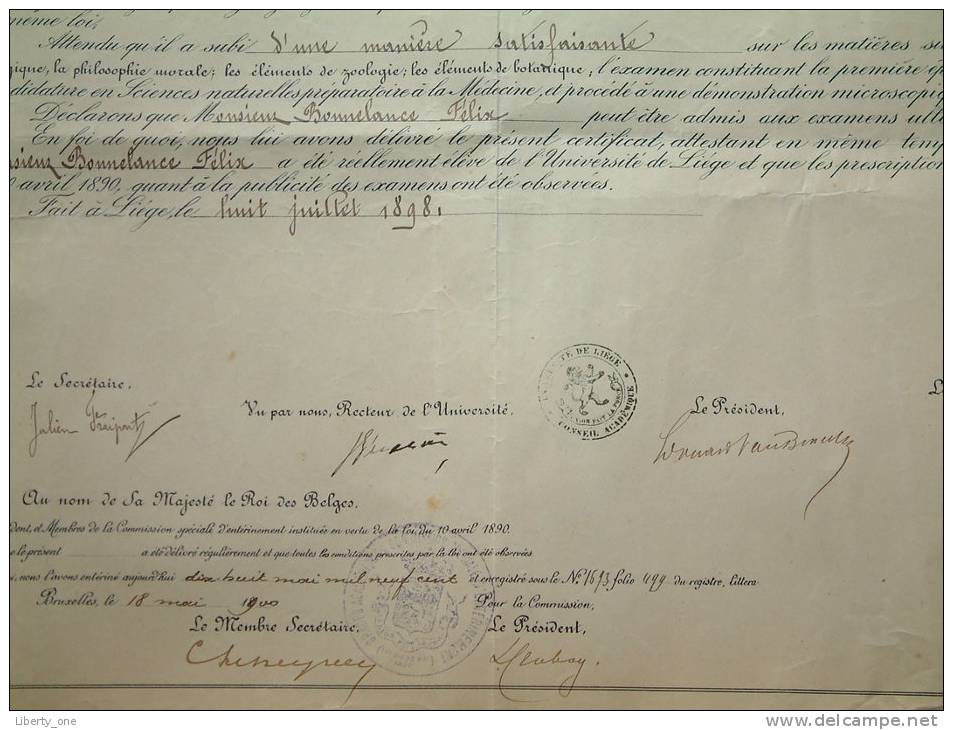 même loi,
Attendu qu'il a subi d'une manière satisfaisante sur les matières
la philosophie morale; les éléments de zoologie; les éléments de botanique; l'examen constituant la première
en Sciences naturelles préparatoire à la Médecine, et procédé à une démonstration
Déclarons que Monsieur Bonnelance Félix peut être admis aux examens
En foi de quoi, nous lui avons délivré le présent certificat, attestant en même
Bonnelance Félix a été réellement élève de l'Université de Liége et que les
avril 1890, quant à la publicité des examens ont été observées.
Fait à Liége, le huit juillet 1898.
DE LIÉGE
L'UNION FAIT LA FORCE
CONSEIL ACADÉMIQUE
Le Secrétaire,
Vu par nous, Recteur de l'Université,
Le Président,
Julien Fraipont
Edouard Van Beneden
Au nom de Sa Majesté le Roi des Belges,
et Membres de la Commission spéciale d'entérinement instituée en vertu de la loi du 10 avril 1890.
le présent a été délivré régulièrement et que toutes les conditions prescrites par la loi ont été observées.
nous l'avons entériné aujourd'hui dix huit mai mil neuf cent et enregistré sous le No 1673 folio 499 du registre, littera
Bruxelles, le 18 mai 1900
Pour la Commission,
Le Membre Secrétaire,
Le Président,
Liberty_one
www.delcampe.net